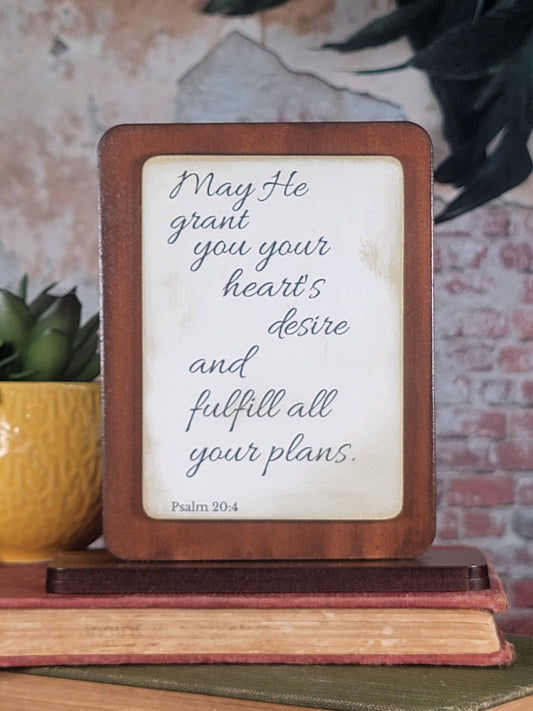 May He
grant
you your
heart's
desire
and
fulfill all
your plans.
Psalm 20:4